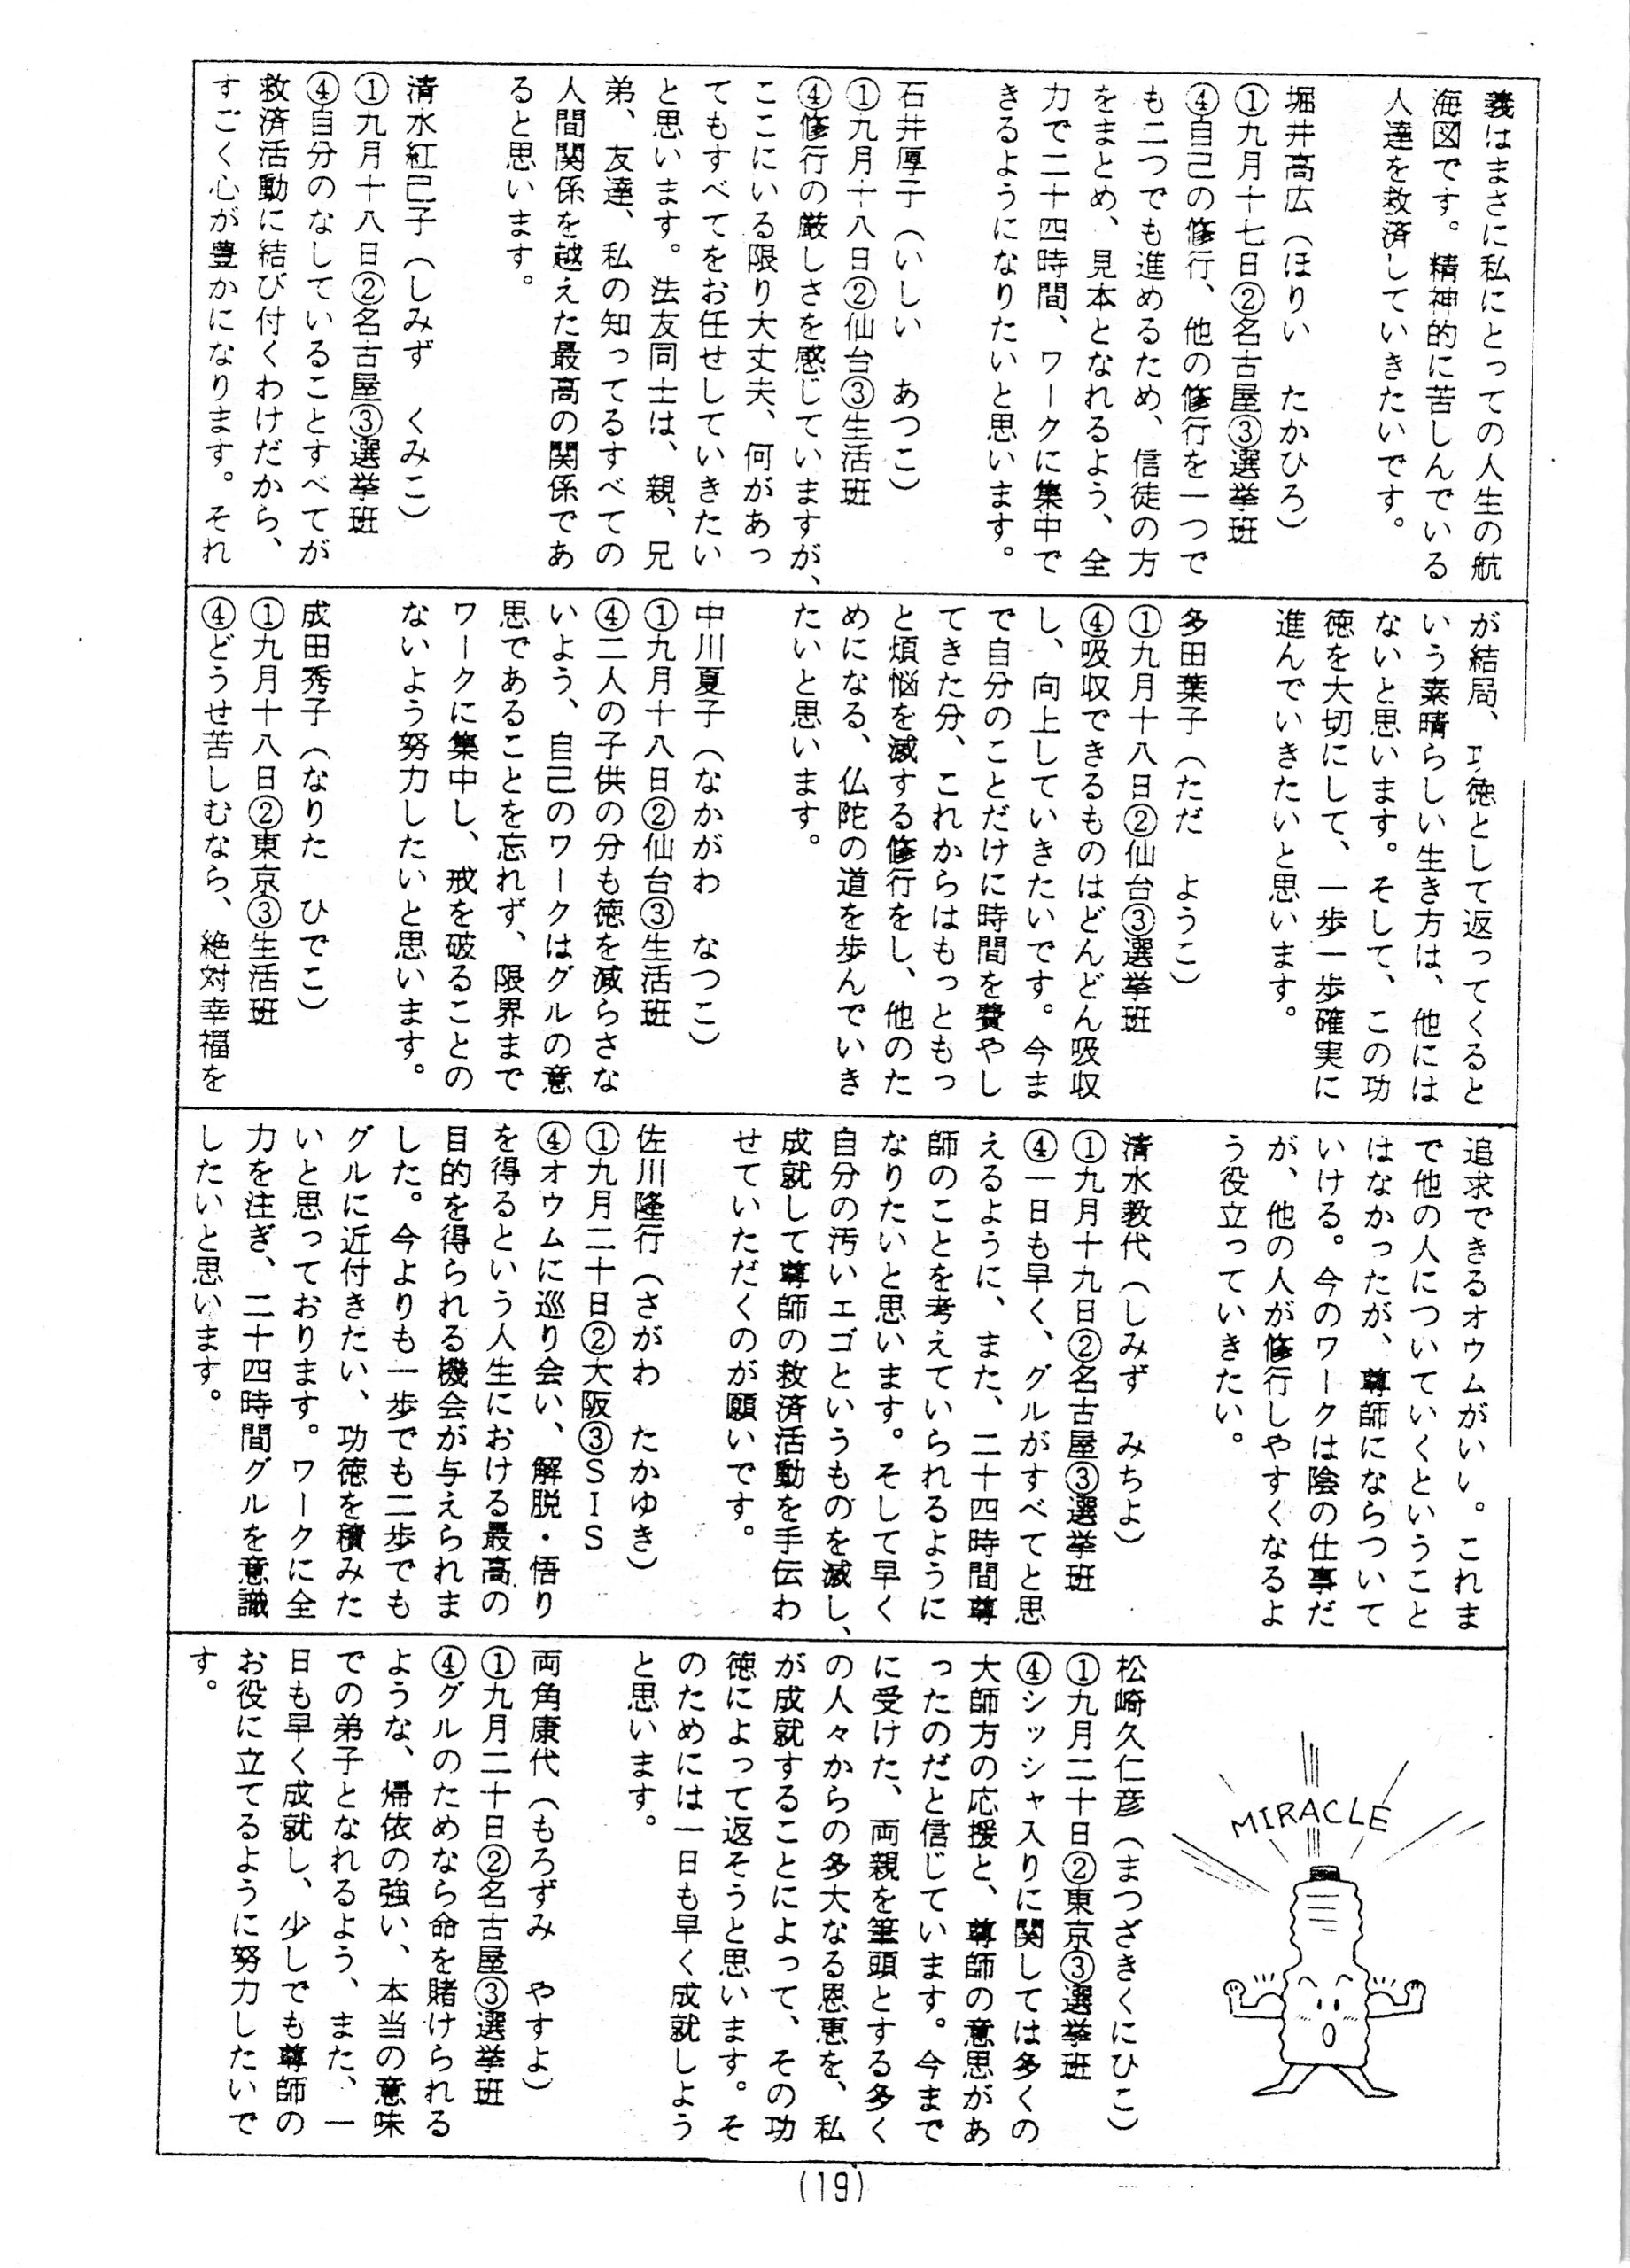 義はまさに私にとっての人生の航
海図です。精神的に苦しんでいる
人達を救済していきたいです。
堀井高広（ほりい　たかひろ）
①九月十七日②名古屋③選挙班
④自己の修行、他の修行を一つで
も二つでも進めるため、信徒の方
をまとめ、見本となれるよう、全
力で二十四時間、ワークに集中で
きるようになりたいと思います。
石井厚子（いしい　あつこ）
①九月十八日②仙台③生活班
④修行の厳しさを感じていますが、
ここにいる限り大丈夫、何があっ
てもすべてをお任せしていきたい
と思います。法友同士は、親、兄
弟、友達、私の知ってるすべての
人間関係を越えた最高の関係であ
ると思います。
清水紅己子（しみず　くみこ）
①九月十八日②名古屋③選挙班
④自分のなしていることすべてが
救済活動に結び付くわけだから、
すごく心が豊かになります。それ
が結局、功徳として返ってくると
いう素晴らしい生き方は、他には
ないと思います。そして、この功
徳を大切にして、一歩一歩確実に
進んでいきたいと思います。
多田葉子（ただ　ようこ）
①九月十八日②仙台③選挙班
④吸収できるものはどんどん吸収
し、向上していきたいです。今ま
で自分のことだけに時間を費やし
てきた分、これからはもっともっ
と煩悩を滅する修行をし、他のた
めになる、仏陀の道を歩んでいき
たいと思います。
中川夏子（なかがわ　なつこ）
①九月十八日②仙台③生活班
④二人の子供の分も徳を減らさな
いよう、自己のワークはグルの意
思であることを忘れず、限界まで
ワークに集中し、戒を破ることの
ないよう努力したいと思います。
成田秀子（なりた　ひでこ）
①九月十八日②東京③生活班
④どうせ苦しむなら、絶対幸福を
追求できるオウムがいい。これま
で他の人についていくということ
はなかったが、尊師にならついて
いける。今のワークは陰の仕事だ
が、他の人が修行しやすくなるよ
う役立っていきたい。
清水教代（しみず　みちよ）
①九月十九日②名古屋③選挙班
④一日も早く、グルがすべてと思
えるように、また、二十四時間尊
師のことを考えていられるように
なりたいと思います。そして早く
自分の汚いエゴというものを滅し、
成就して尊師の救済活動を手伝わ
せていただくのが願いです。
佐川隆行（さがわ　たかゆき）
①九月二十日②大阪③ＳＩＳ
④オウムに巡り会い、解脱・悟り
を得るという人生における最高の
目的を得られる機会が与えられま
した。今よりも一歩でも二歩でも
グルに近付きたい、功徳を積みた
いと思っております。ワークに全
力を注ぎ、二十四時間グルを意識
したいと思います。
MIRACLE
松崎久仁彦（まつざきくにひこ）
①九月二十日②東京③選挙班
④シッシャ入りに関しては多くの
大師方の応援と、尊師の意思があ
ったのだと信じています。今まで
に受けた、両親を筆頭とする多く
の人々からの多大なる恩恵を、私
が成就することによって、その功
徳によって返そうと思います。そ
のためには一日も早く成就しよう
と思います。
両角康代（もろずみ　やすよ）
①九月二十日②名古屋③選挙班
④グルのためなら命を賭けられる
ような、帰依の強い、本当の意味
での弟子となれるよう、また、一
日も早く成就し、少しでも尊師の
お役に立てるように努力したいで
す。
(19)